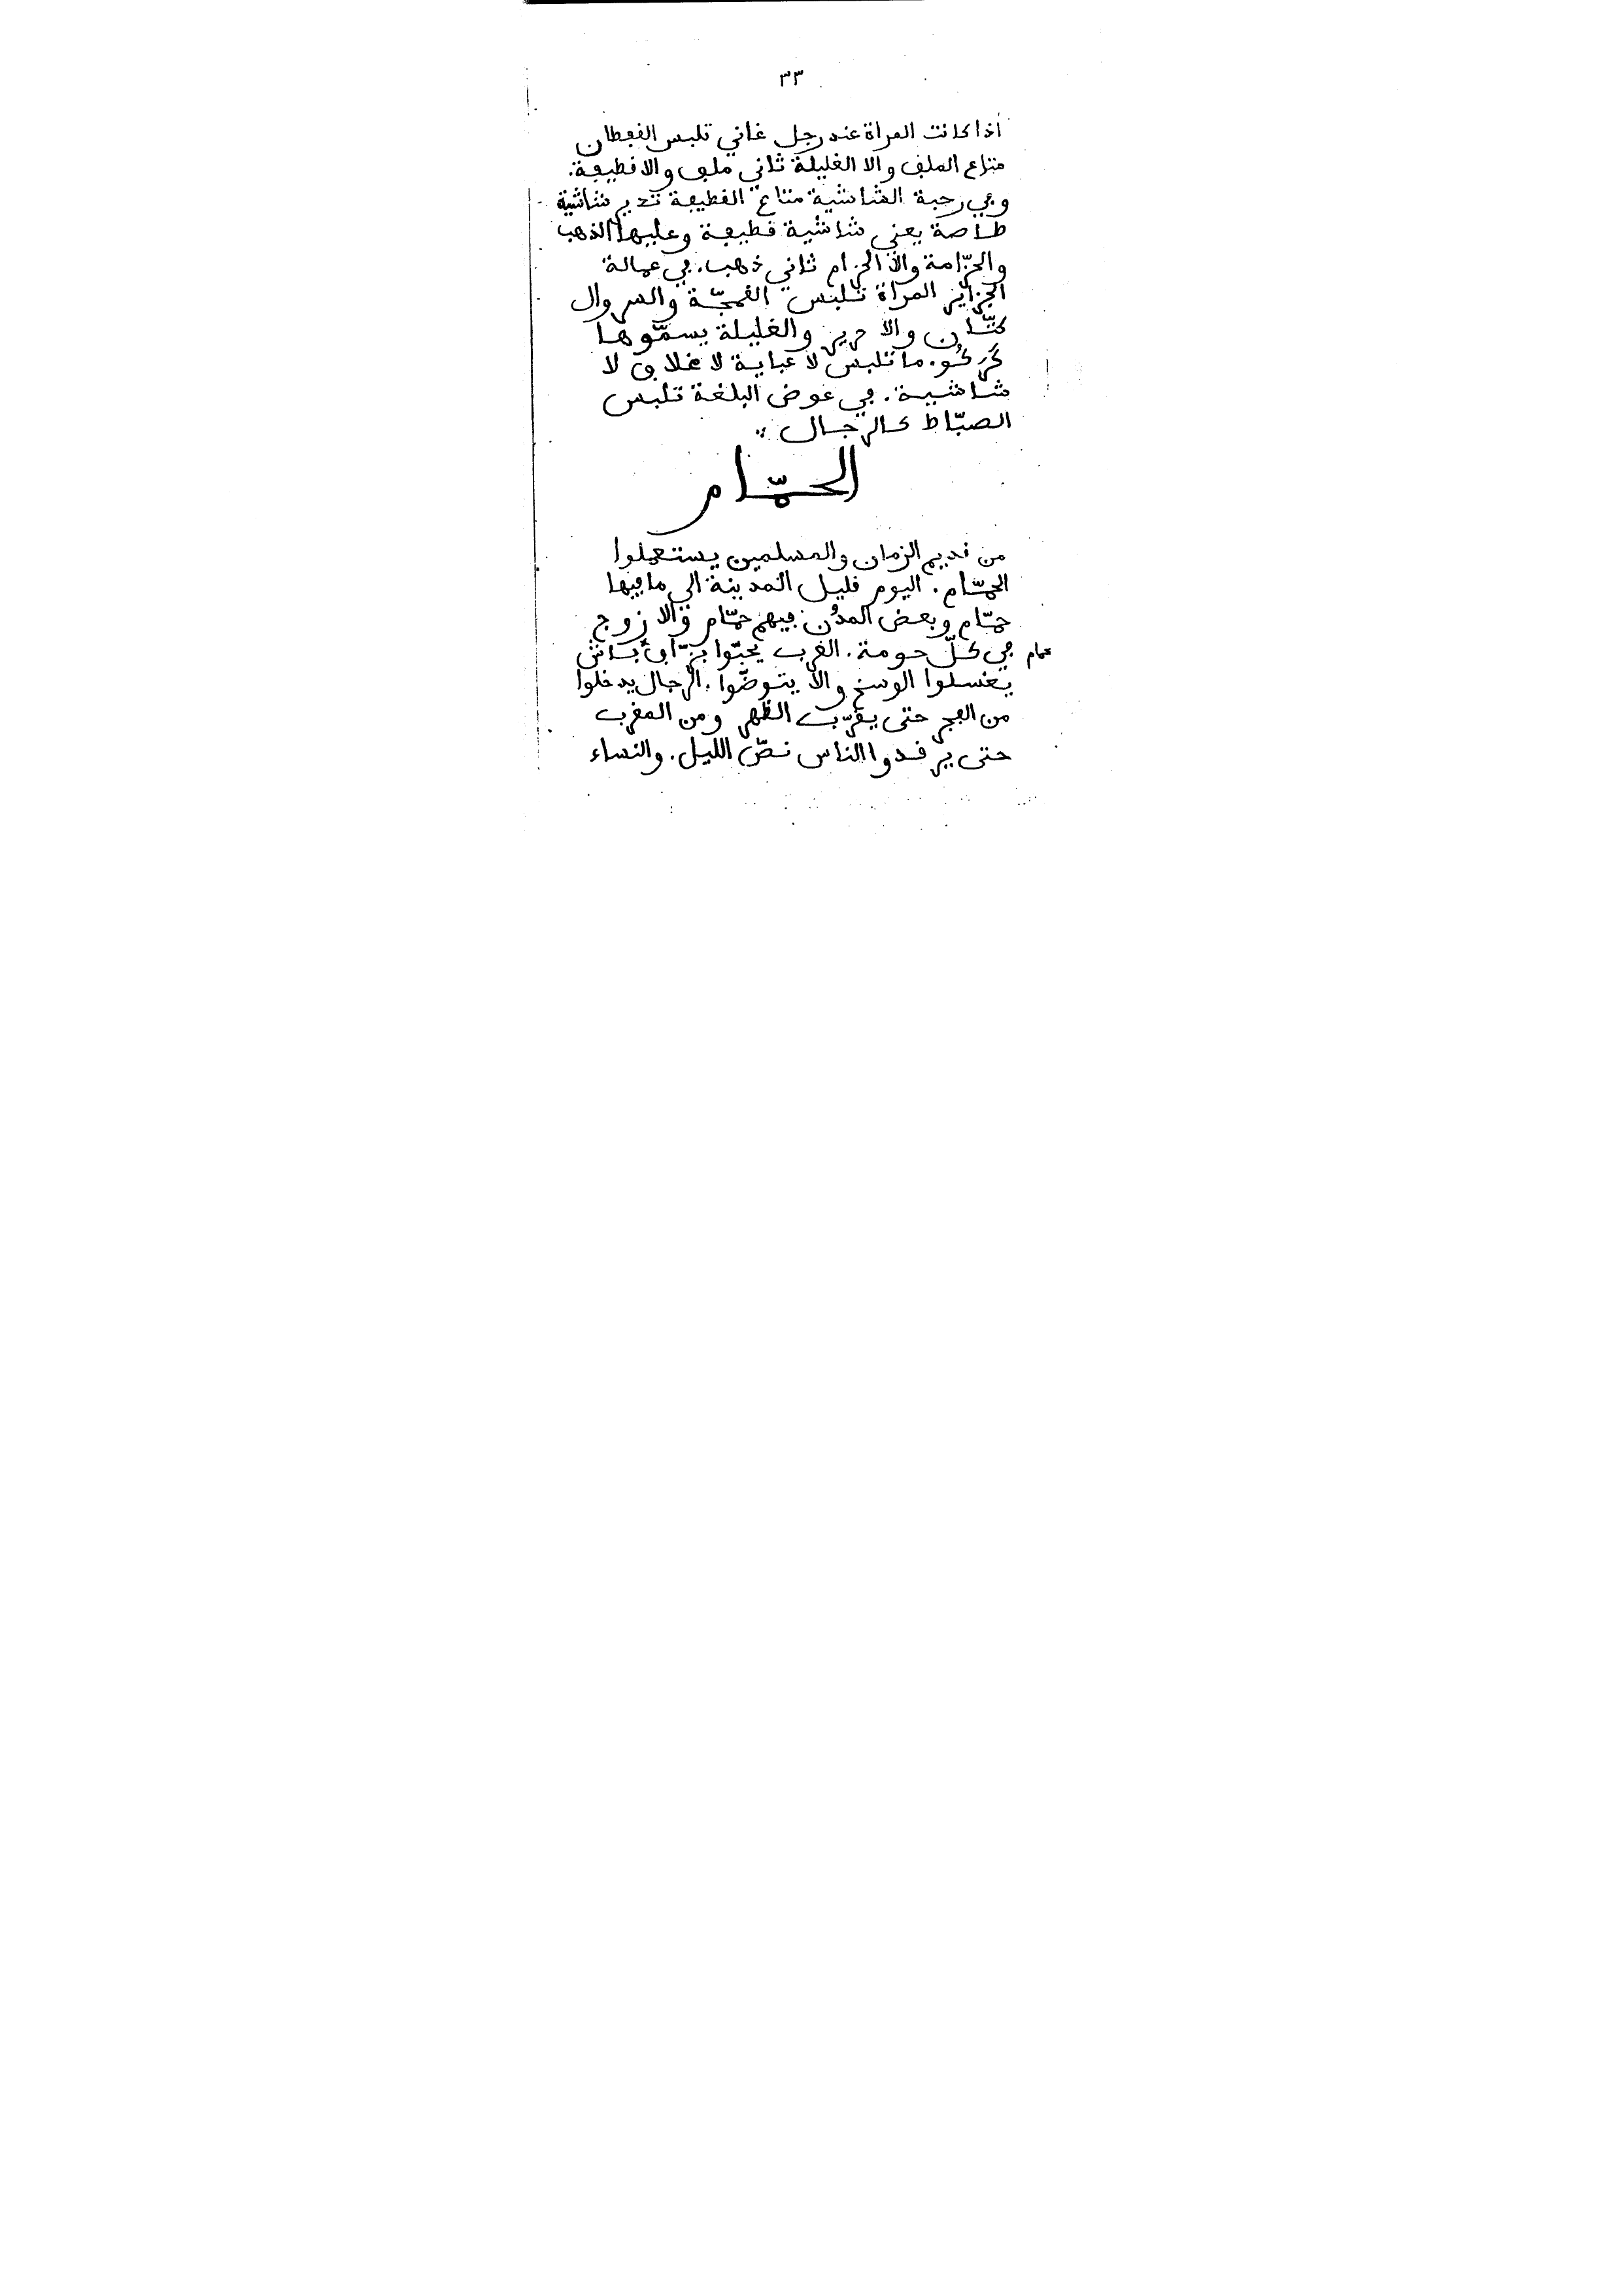 ٣٣
اذا كانت المراة عند رجل غاني تلبس القفطان
متاع الملف والا الغليلة ثاني ملف والا قطيفة.
وفي رحبة الشاشية متاع القطيفة تدير شاشية
طاصة يعني شاشية قطيفة وعليها الذهب
والحزّامة والا الحزام ثاني ذهب. في عمالة
الجزاير المراة تلبس القمجّة والسروال
كتّان والا حرير والغليلة يسمّوها
كَركُو. ما تلبس لا عباية لا غلاف لا
شاشية. في عوض البلغة تلبس
الصبّاط كالرجال
الحمّام
من قديم الزمان والمسلمين يستعملوا
الحمّام. اليوم قليل المدينة الي ما فيها
حمّام وبعض المدُن فيهم حمّام والا زوج
في كلّ حومة. العرب يحبّوا بزّاف باش
حمام
يغسلوا الوسخ والا يتوضّوا. الرجال يدخلوا
من الفجر حتى يقرّب الظهر ومن المغرب
حتى يرقدوا الناس نصّ الليل. والنساء